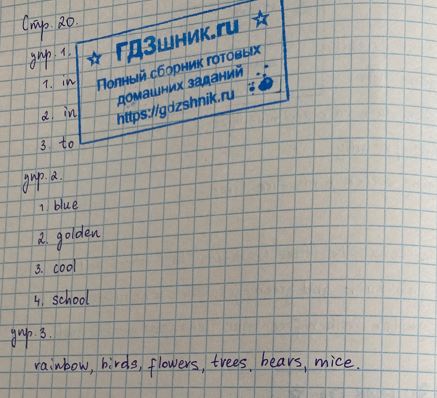 Стр. 20.
упр. 1.
1. in
2. in
3. to
ГДЗшник.ru
Полный сборник готовых
домашних заданий
https://gdzshnik.ru
упр. 2.
1. blue
2. golden
3. cool
4. school
упр. 3.
rainbow, birds, flowers, trees, bears, mice.